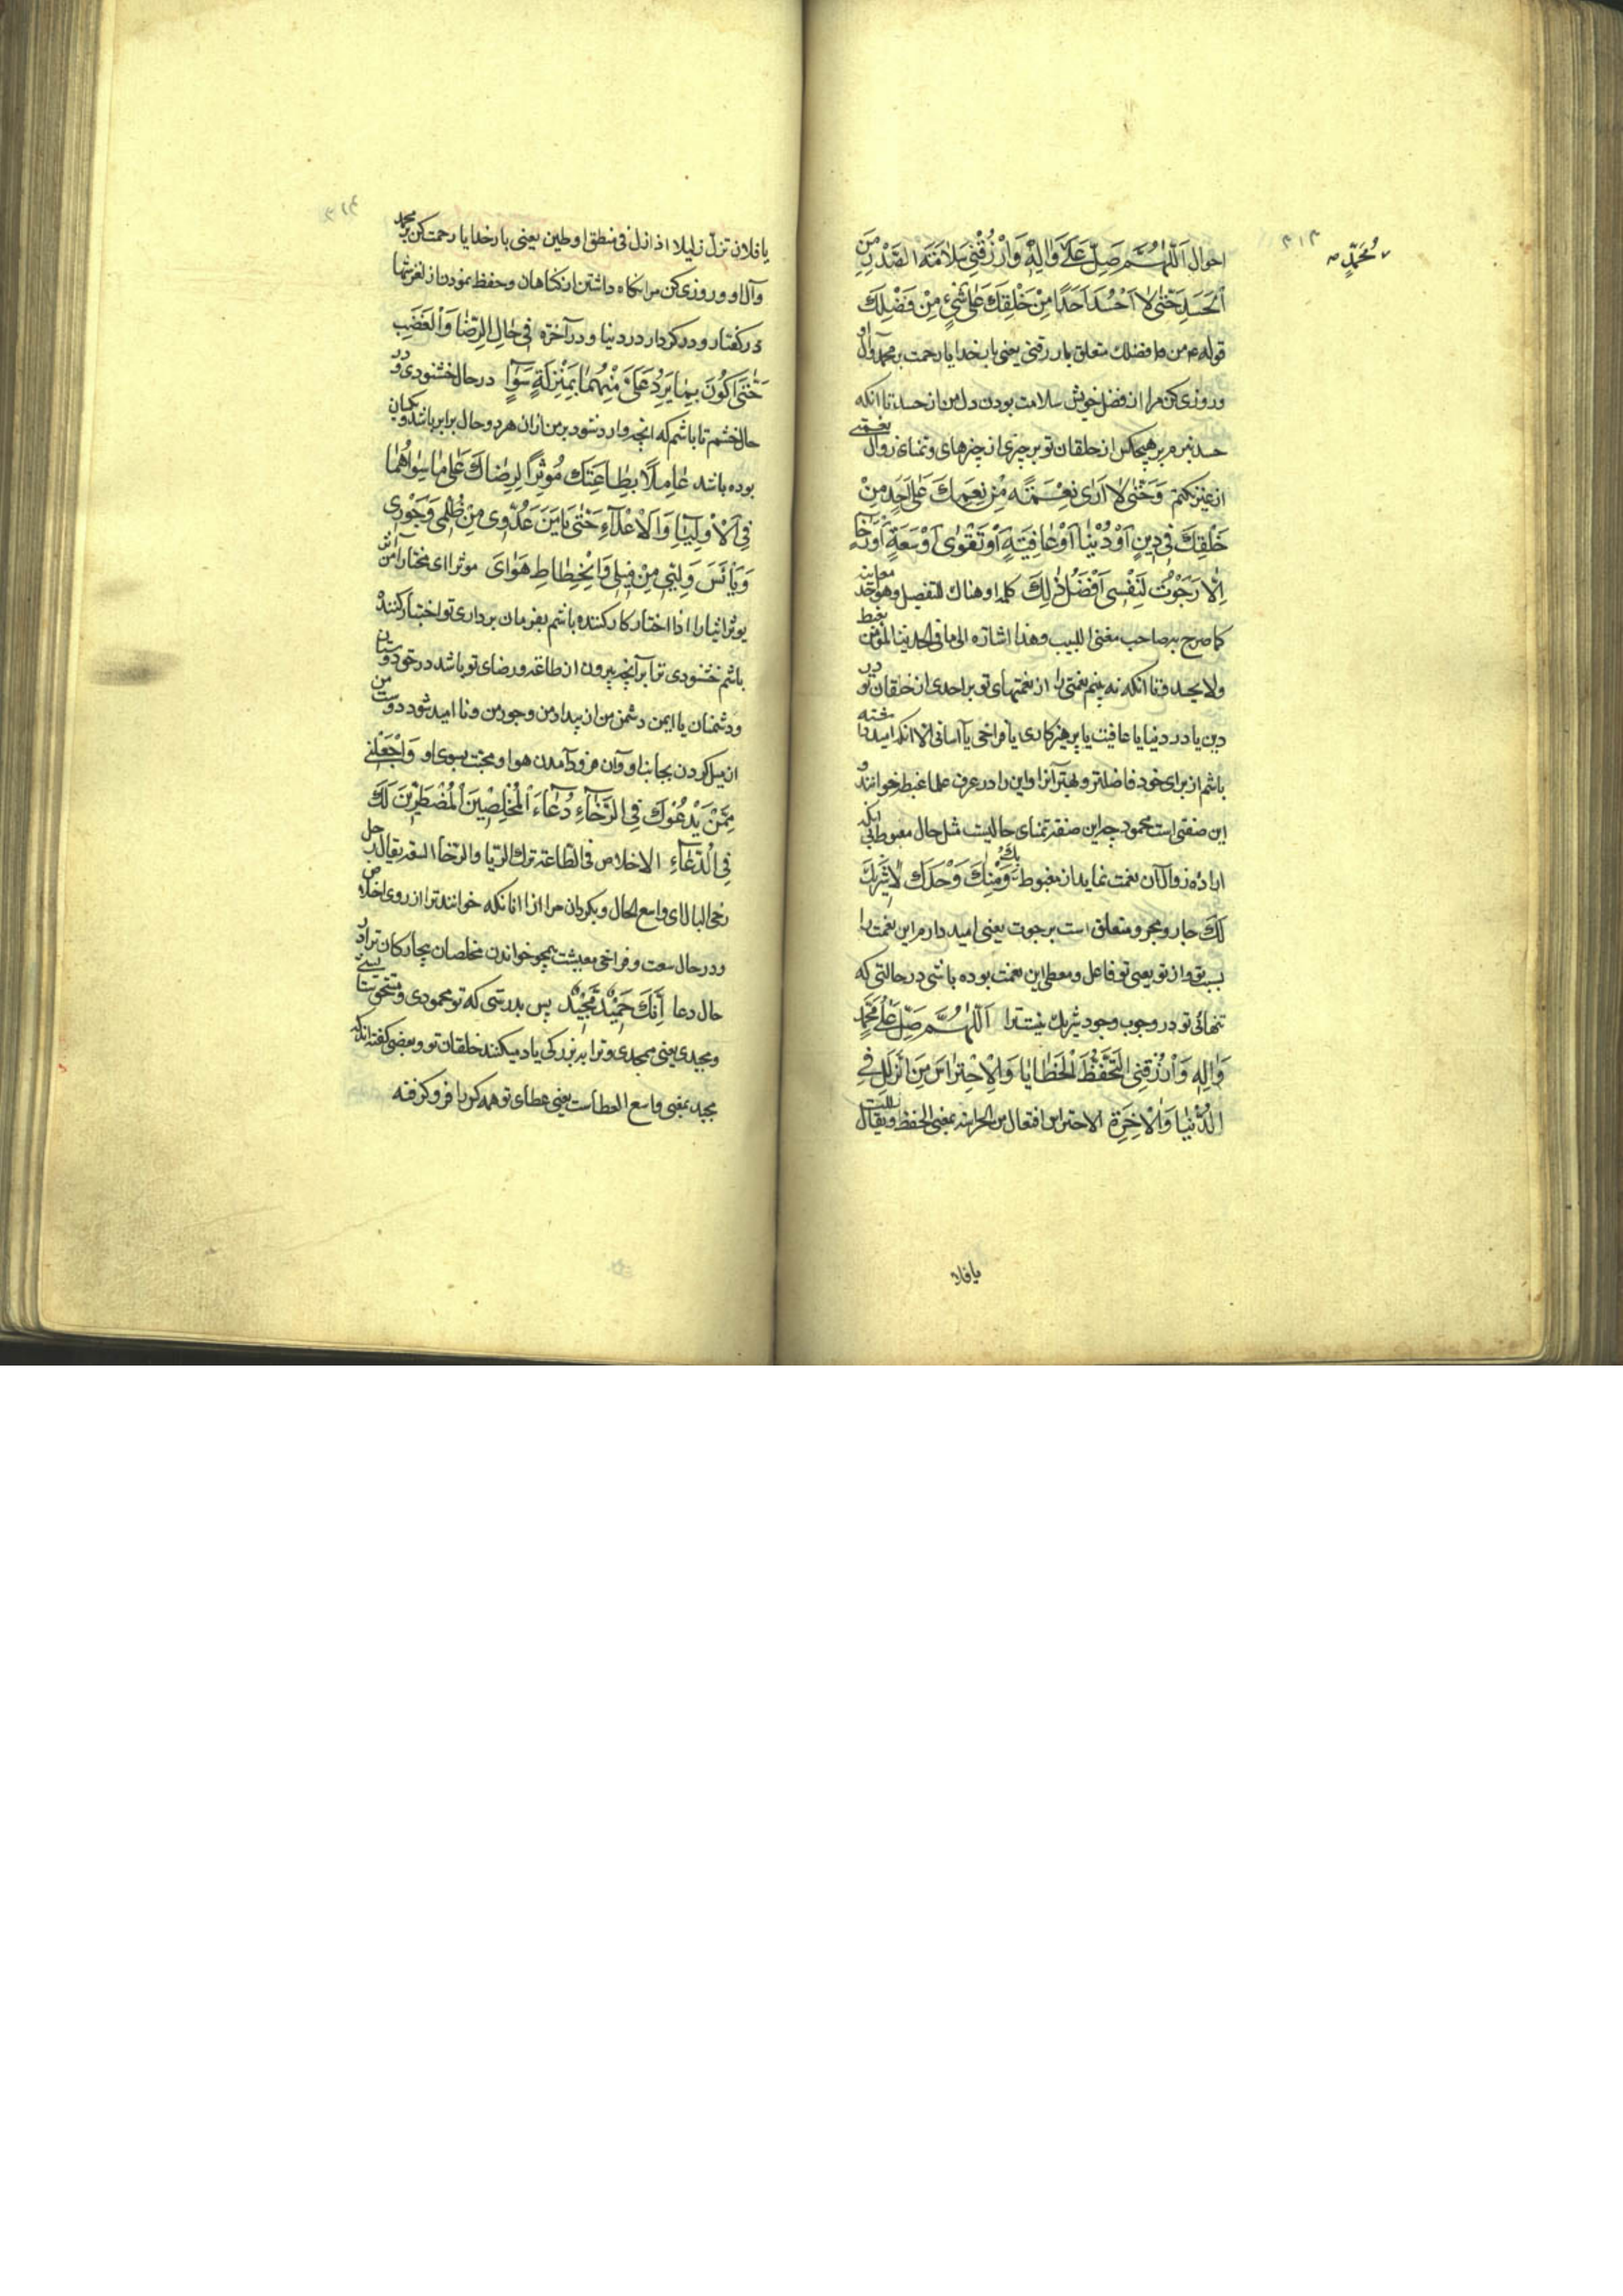 ۳۱۳
مُحَمَّدٍ
احوال اَللّٰهُمَّ صَلِّ عَلٰى وَاٰلِهٖ وَارْزُقْنِى سَلَامَةَ الصَّدْرِ مِنَ
الْحَسَدِ حَتّٰى لَا اَحْسُدَ اَحَدًا مِنْ خَلْقِكَ عَلٰى شَىْءٍ مِنْ فَضْلِكَ
قوله ع من فضلك متعلق بارزقنى يعنى بار خدايا رحمت بر محمد وآل او
و روزى كن مرا از فضل خويش سلامت بودن دل من از حسد تا آنكه
حسد نبرم بر هيچكس از خلقان تو بر چيزى از چيزهاى وتمناى زوال نعمتى
از غير نكنم وَحَتّٰى لَا اَرٰى نِعْمَةً مِنْ نِعَمِكَ عَلٰى اَحَدٍ مِنْ
خَلْقِكَ فِى دِينٍ اَوْ دُنْيَا اَوْ عَافِيَةٍ اَوْ تَقْوٰى اَوْ سَعَةٍ اَوْ رَخَاءٍ
اِلَّا رَجَوْتُ لِنَفْسِى اَفْضَلَ ذٰلِكَ كلمه او هناك للتفصيل وهو احد معانيه
كما صرح به صاحب مغنى اللبيب وهذا اشاره الى ما فى الحديث المؤمن يغبط
ولا يحسد وتا آنكه نه بينم نعمتى را از نعمتهاى تو بر احدى از خلقان تو در
دين يا در دنيا يا عافيت يا پرهيزكارى يا فراخى يا آسانى الا آنكه اميد داشته
باشم از براى خود فاضلتر وبهتر آنرا واين را در عرف علما غبطه خوانند و
اين صفتى است محمود چه اين صفة تمناى حاليست مثل حال مغبوط بى آنكه
اراده زوال آن نعمت نمايد از مغبوط بِكَ وَمِنْكَ وَحْدَكَ لَا شَرِيكَ
لَكَ جار ومجرور متعلق است برجوت يعنى اميد دارم اين نعمت را
بسبب تو واز تو يعنى تو فاعل ومعطى اين نعمت بوده باشى در حالتى كه
تنهائى تو در وجوب وجود شريك نيست ترا اَللّٰهُمَّ صَلِّ عَلٰى مُحَمَّدٍ
وَاٰلِهٖ وَارْزُقْنِى التَّحَفُّظَ مِنَ الْخَطَايَا وَالْاِحْتِرَاسَ مِنَ الزَّلَلِ فِى
الدُّنْيَا وَالْاٰخِرَةِ الاحتراس افتعال من الحراسه بمعنى الحفظ ويقال زللت
يا فلا
۳۱۴
يا فلان تزل زليلا اذا زل فى منطق او طين يعنى بار خدايا رحمت كن بر محمد
وآل او و روزى كن مرا نگاه داشتن از گناهان وحفظ نمودن از لغزشها
در گفتار ودر كردار در دنيا ودر آخرة فِى حَالِ الرِّضَا وَالْغَضَبِ
حَتّٰى اَكُونَ بِمَا يَرِدُ عَلَىَّ مِنْهُمَا بِمَنْزِلَةٍ سَوَاءٍ در حال خشنودى ودر
حال خشم تا باشم كه آنچه وارد شود بر من از آن هر دو حال برابر باشد ويكسان
بوده باشد عَامِلًا بِطَاعَتِكَ مُؤْثِرًا لِرِضَاكَ عَلٰى مَا سِوَاهُمَا
فِى الْاَوْلِيَاءِ وَالْاَعْدَاءِ حَتّٰى يَاْمَنَ عَدُوِّى مِنْ ظُلْمِى وَجَوْرِى
وَيَاْيَسَ وَلِيِّى مِنْ مَيْلِى وَانْحِطَاطِ هَوَاىَ موثرا اى مختارا من آثر
يوثر ايثارا اذا اختار كار كننده باشم بفرمان بردارى تو اختيار كننده
باشم خشنودى ترا بر آنچه بيرون از طاعة ورضاى تو باشد در حق دوستان
ودشمنان يا ايمن دشمن من از بيداد من وجور من ونااميد شود دوست من
از ميل كردن بجانب او وآن فرود آمدن هوا ومحبت بسوى او وَاجْعَلْنِى
مِمَّنْ يَدْعُوكَ فِى الرَّخَاءِ دُعَاءَ الْمُخْلِصِينَ الْمُضْطَرِّينَ لَكَ
فِى الدُّعَاءِ الاخلاص فى الطاعة ترك الريا والرخا السعة يقال رجل
رخى البال اى واسع الحال وبگردان مرا از آنانكه خوانند ترا از روى اخلاص
ودر حال سعت وفراخى معيشت همچو خواندن مخلصان بيچارگان ترا در
حال دعا اِنَّكَ حَمِيدٌ مَجِيدٌ پس بدرستى كه تو محمودى ومستحق ستايشى
ومجيدى يعنى ممجدى وترا به بزرگى ياد ميكنند خلقان تو وبعضى گفته اند كه
مجيد بمعنى واسع العطاست يعنى عطاى تو همه كس را فرو گرفته